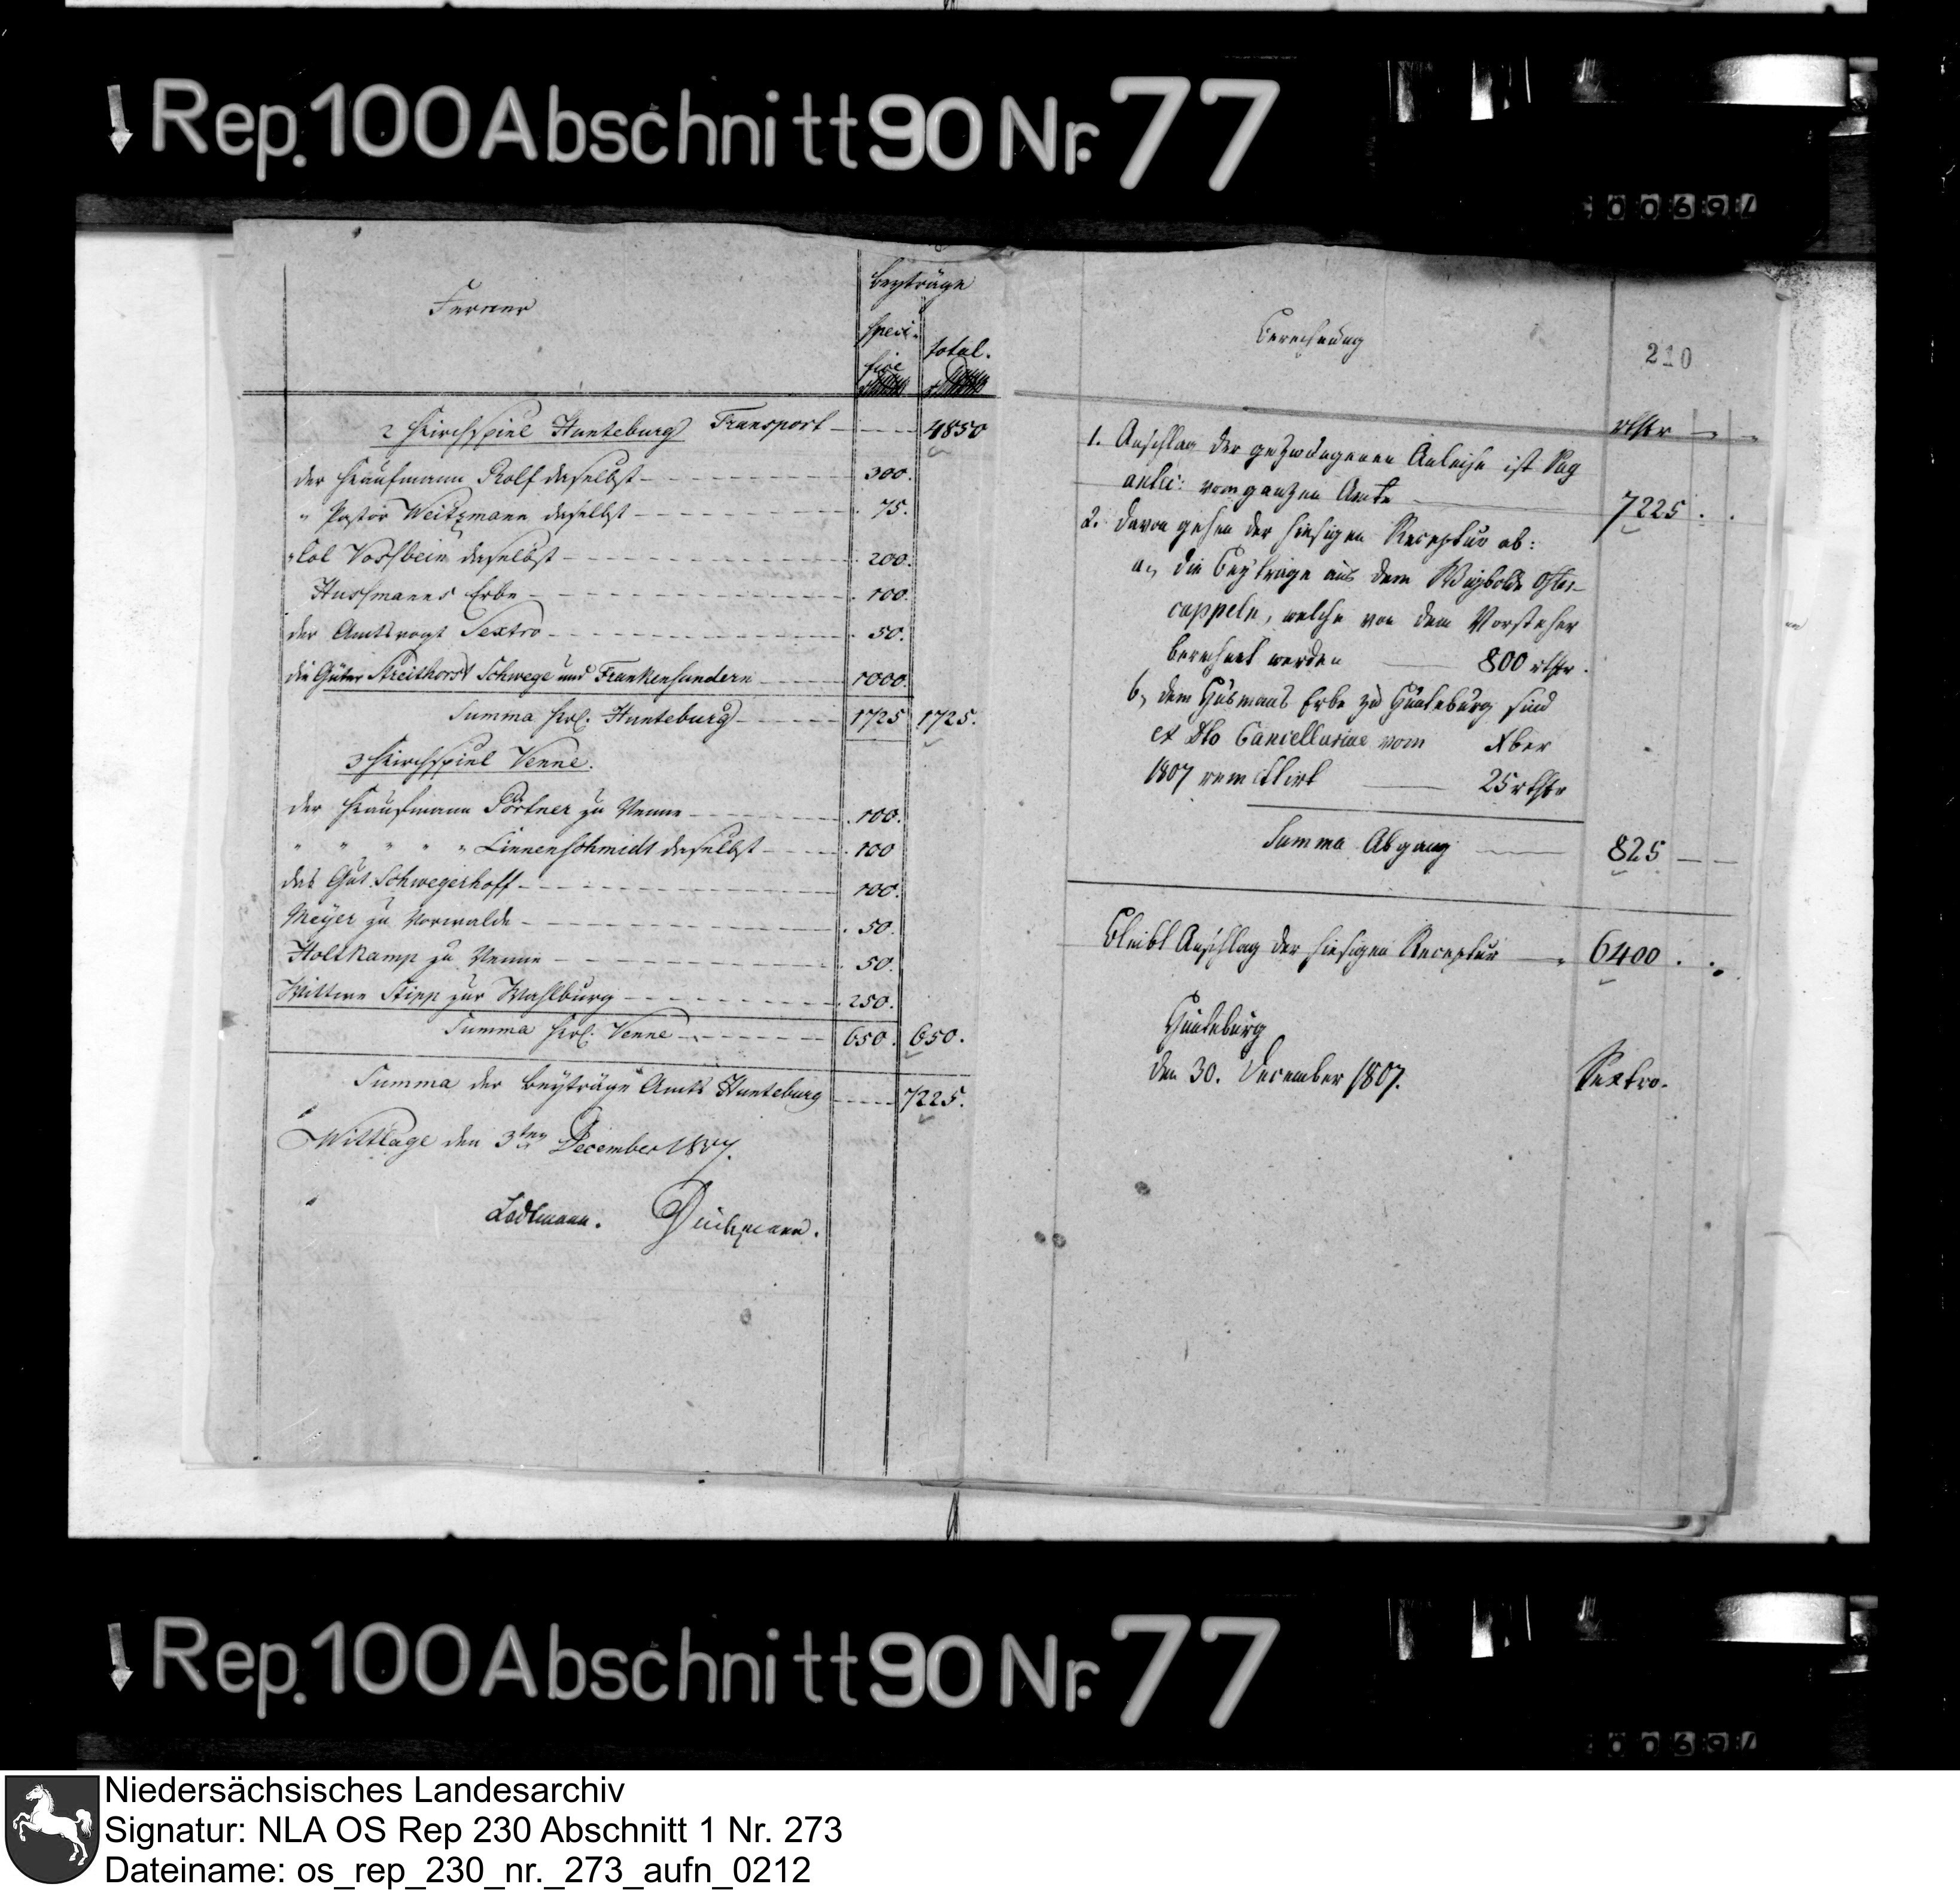 Rep. 100 Abschnitt 90 Nr. 77
Ferner
Beyträge
speci-
fice
total.
2 Kirchspiel Hunteburg Transport 4850
der Kaufmann Rolf daselbst 300.
" Pastor Weitzmann daselbst 75.
" Col Vossbein daselbst 200.
Hussmanns Erbe 100.
der Amtsvogt Sextro 50.
die Güter Streithorst Schwege und Frankensundern 1000.
Summa Krsl. Hunteburg 1725 1725.
3 Kirchspiel Venne.
der Kaufmann Pörtner zu Venne 100.
" " " " " Linnenschmidt daselbst 100
das Gut Schwegerhoff 100.
Meyer zu Vorwalde 50.
Holtkamp zu Venne 50.
Wittwe Stipp zur Wahlburg 250.
Summa Krsl. Venne 650. 650.
Summa der Beyträge Amts Hunteburg 7225.
Wittlage den 3ten December 1807.
Lodtmann.
Berechnung
210
rthlr
1. Anschlag der gezwungenen Anleihe ist Pag
antec: vom ganzen Amte 7225.
2. Davon gehen der hiesigen Receptur ab:
a, die Beyträge aus dem Wigbolde Oster-
cappeln, welche von dem Vorsteher
berechnet werden 800 rthlr.
b, dem Husmans Erbe zu Hunteburg sind
ex Dto Cancellariae vom Xber
1807 remittirt 25 rthlr
Summa Abgang 825
Bleibt Anschlag der hiesigen Receptur 6400.
Hunteburg
den 30. December 1807.
Sextro.
Rep. 100 Abschnitt 90 Nr. 77
Niedersächsisches Landesarchiv
Signatur: NLA OS Rep 230 Abschnitt 1 Nr. 273
Dateiname: os_rep_230_nr._273_aufn_0212